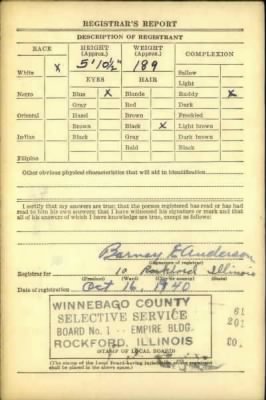 REGISTRAR'S REPORT
DESCRIPTION OF REGISTRANT
RACE HEIGHT (Approx.) WEIGHT (Approx.) COMPLEXION
5' 10½" 189
White x Sallow
EYES HAIR Light
Negro Blue x Blonde Ruddy x
Gray Red Dark
Oriental Hazel Brown Freckled
Brown Black x Light brown
Indian Black Gray Dark brown
Bald Black
Filipino
Other obvious physical characteristics that will aid in identification
I certify that my answers are true; that the person registered has read or has had
read to him his own answers; that I have witnessed his signature or mark and that
all of his answers of which I have knowledge are true, except as follows:
Barney E Anderson
(Signature of registrar)
Registrar for 10 Rockford Illinois
(Precinct) (Ward) (City or county) (State)
Date of registration Oct 16, 1940
WINNEBAGO COUNTY
SELECTIVE SERVICE
BOARD No. 1 -- EMPIRE BLDG.
ROCKFORD, ILLINOIS
(STAMP OF LOCAL BOARD)
(The stamp of the Local Board having
shall be placed in the above space)